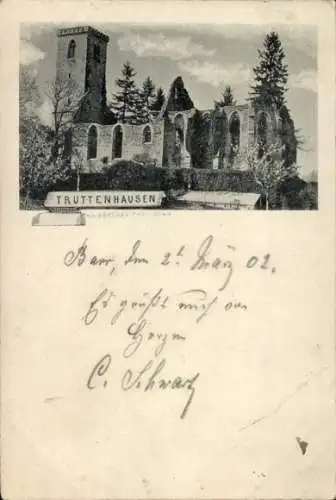 TRUTTENHAUSEN
Barr, den 2t. März 02.
Es grüßt euch von
Herzen
C. Schwartz